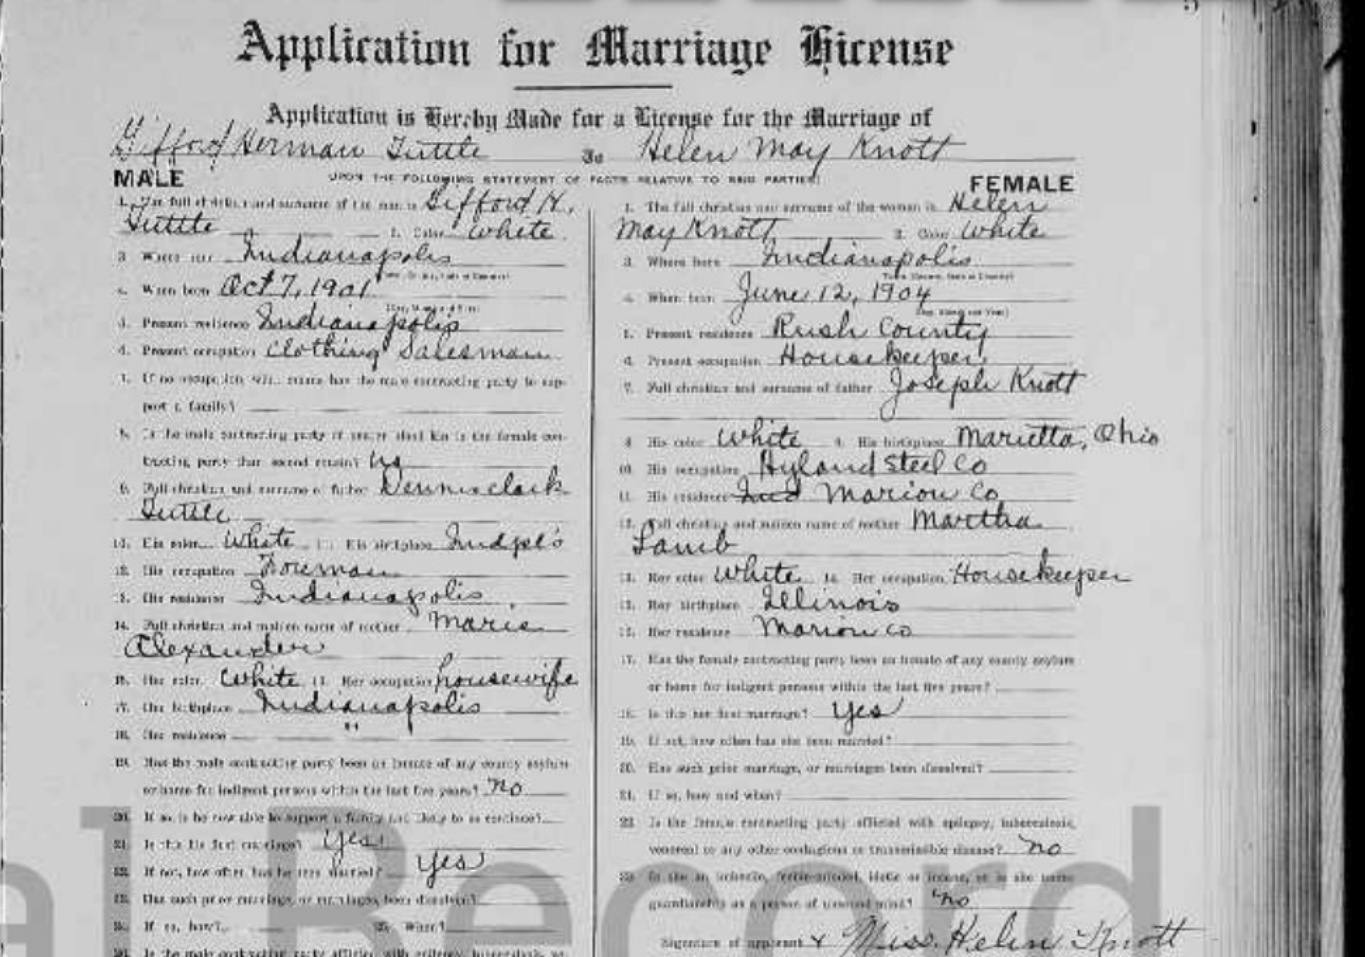 5
Application for Marriage License
Application is Hereby Made for a License for the Marriage of
Gifford Herman Tuttle To Helen May Knott
UPON THE FOLLOWING STATEMENT OF FACTS RELATIVE TO SAID PARTIES:
MALE
1. The full christian and surname of the man is Gifford H.
Tuttle 2. Color White
3. Where born Indianapolis
4. When born Oct 7, 1901
5. Present residence Indianapolis
6. Present occupation Clothing Salesman
7. If no occupation what means has the male contracting party to sup-
port a family?
8. Is the male contracting party of nearer blood kin to the female con-
tracting party than second cousin? no
9. Full christian and surname of father Dennis Clark
Tuttle
10. His color White 11. His birthplace Indpls
12. His occupation Foreman
13. His residence Indianapolis
14. Full christian and maiden name of mother Marie
Alexander
15. Her color White 16. Her occupation housewife
17. Her birthplace Indianapolis
18. Her residence "
19. Has the male contracting party been an inmate of any county asylum
or home for indigent persons within the last five years? no
20. If so, is he now able to support a family and likely to so continue?
21. Is this his first marriage? Yes
22. If not, how often has he been married? Yes
23. Has such prior marriage, or marriages, been dissolved?
24. If so, how? 25. When?
26. Is the male contracting party afflicted with epilepsy, tuberculosis, ve-
FEMALE
1. The full christian and surname of the woman is Helen
May Knott 2. Color White
3. Where born Indianapolis
(Town, County, State or Country)
4. When born June 12, 1904
(Day, Month and Year)
5. Present residence Rush County
6. Present occupation Housekeeper
7. Full christian and surname of father Joseph Knott
8. His color White 9. His birthplace Marietta, Ohio
10. His occupation Hyland Steel Co
11. His residence Ind Marion Co
12. Full christian and maiden name of mother Martha
Lamb
13. Her color White 14. Her occupation Housekeeper
15. Her birthplace Illinois
16. Her residence Marion Co
17. Has the female contracting party been an inmate of any county asylum
or home for indigent persons within the last five years?
18. Is this her first marriage? Yes
19. If not, how often has she been married?
20. Has such prior marriage, or marriages been dissolved?
21. If so, how and when?
22. Is the female contracting party afflicted with epilepsy, tuberculosis,
venereal or any other contagious or transmissible disease? no
23. Is she an imbecile, feeble-minded, idiotic or insane, or is she under
guardianship as a person of unsound mind? no
Signature of applicant x Miss. Helen Knott
al Record